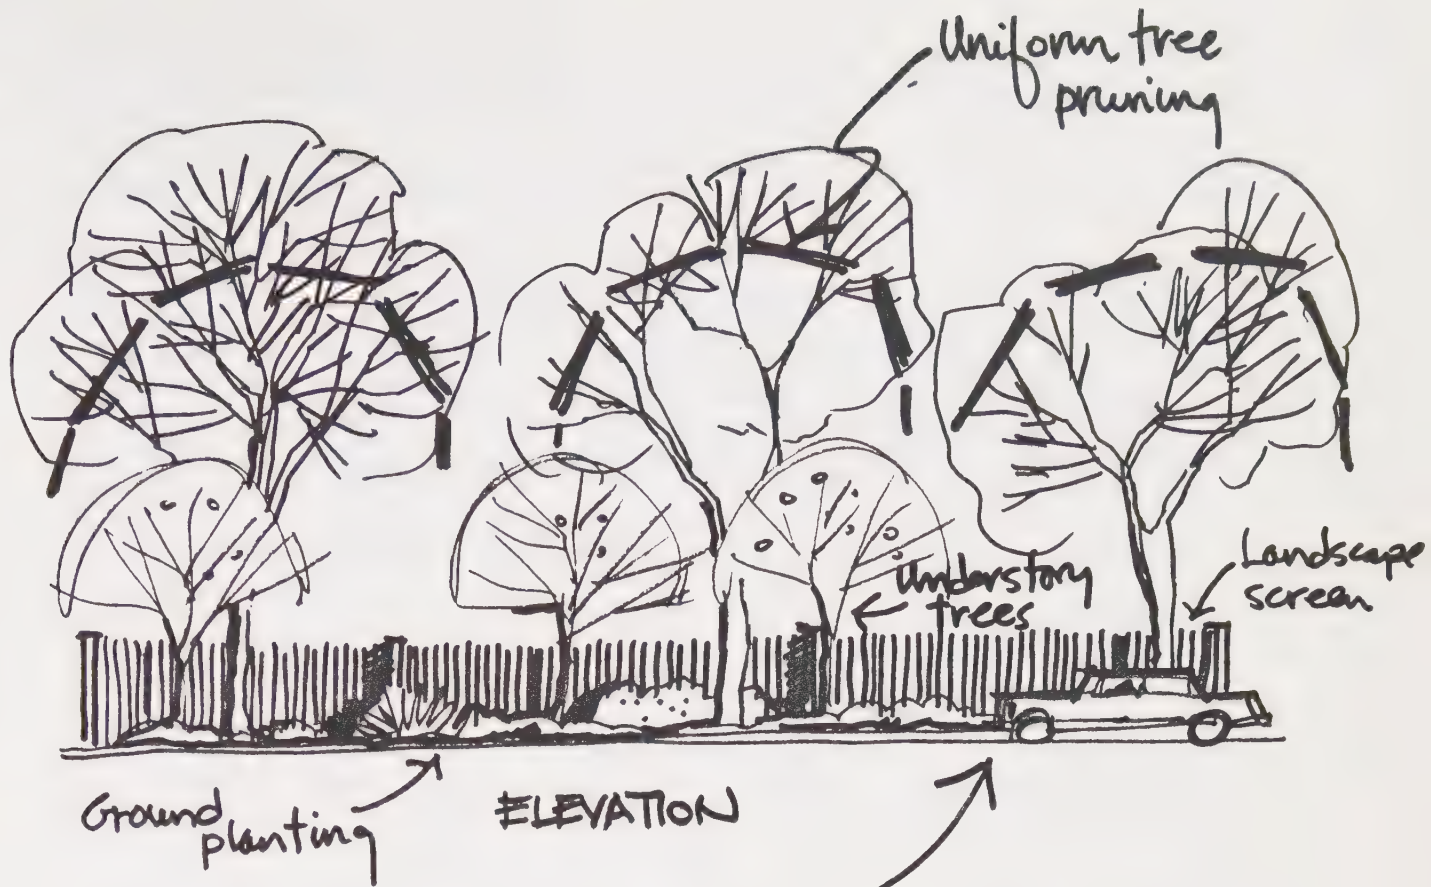 Uniform tree
pruning
Understory
trees
Landscape
screen
Ground
planting
ELEVATION